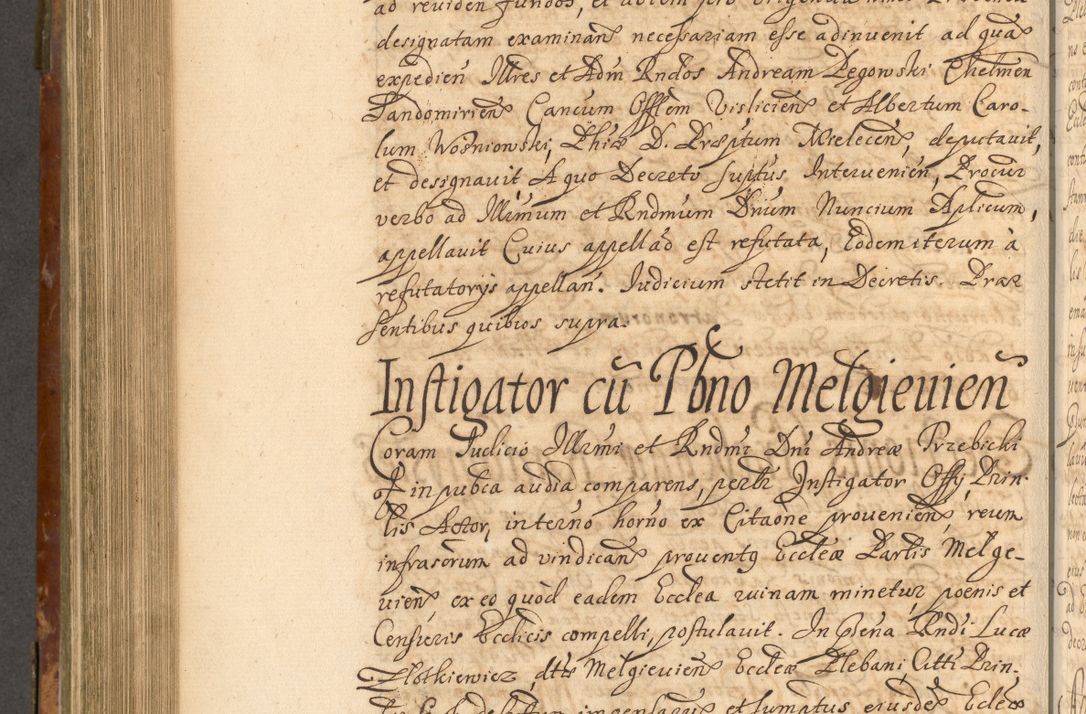 ad reviden fundos, et
designatam examinan necessariam esse adinvenit ad qua
expedien Illres et Adm Rndos Andream Pegowski Chelmen
Sandomirien Cancum Offlem Vislicien et Albertum Caro-
lum Wosniowski, Phiæ D. Præptum Mielecen, deputavit,
et designavit A quo Decreto suptus Intervenien, Procur
verbo ad Illrimum et Rndmum Dnum Nuncium Aplicum,
appellavit Cuius appellao est refutata, Eodem iterum à
refutatorijs appellan. Iudicium stetit in Decretis. Præ
sentibus quibus supra.
Instigator cũ Pbno Melgievien
Coram Iudicio Illrmi et Rndmi Dni Andreæ Trzebicki
in pubca audia comparens, perlis Instigator Offij Prin-
lis Actor, in termo horno ex Citaone provenien, reum
infrascrum ad vindican proventg Eccleæ Partis Melge-
vien, ex eo quòd eadem Ecclea ruinam minetur, poenis et
Censuris Ecclicis compelli, postulavit. In Pñena Rndi Lucæ
Złotkiewicz, dtti Melgievien Eccleæ Plebani, Citti Prin-
impensaris et sumptus eiusde Eclea